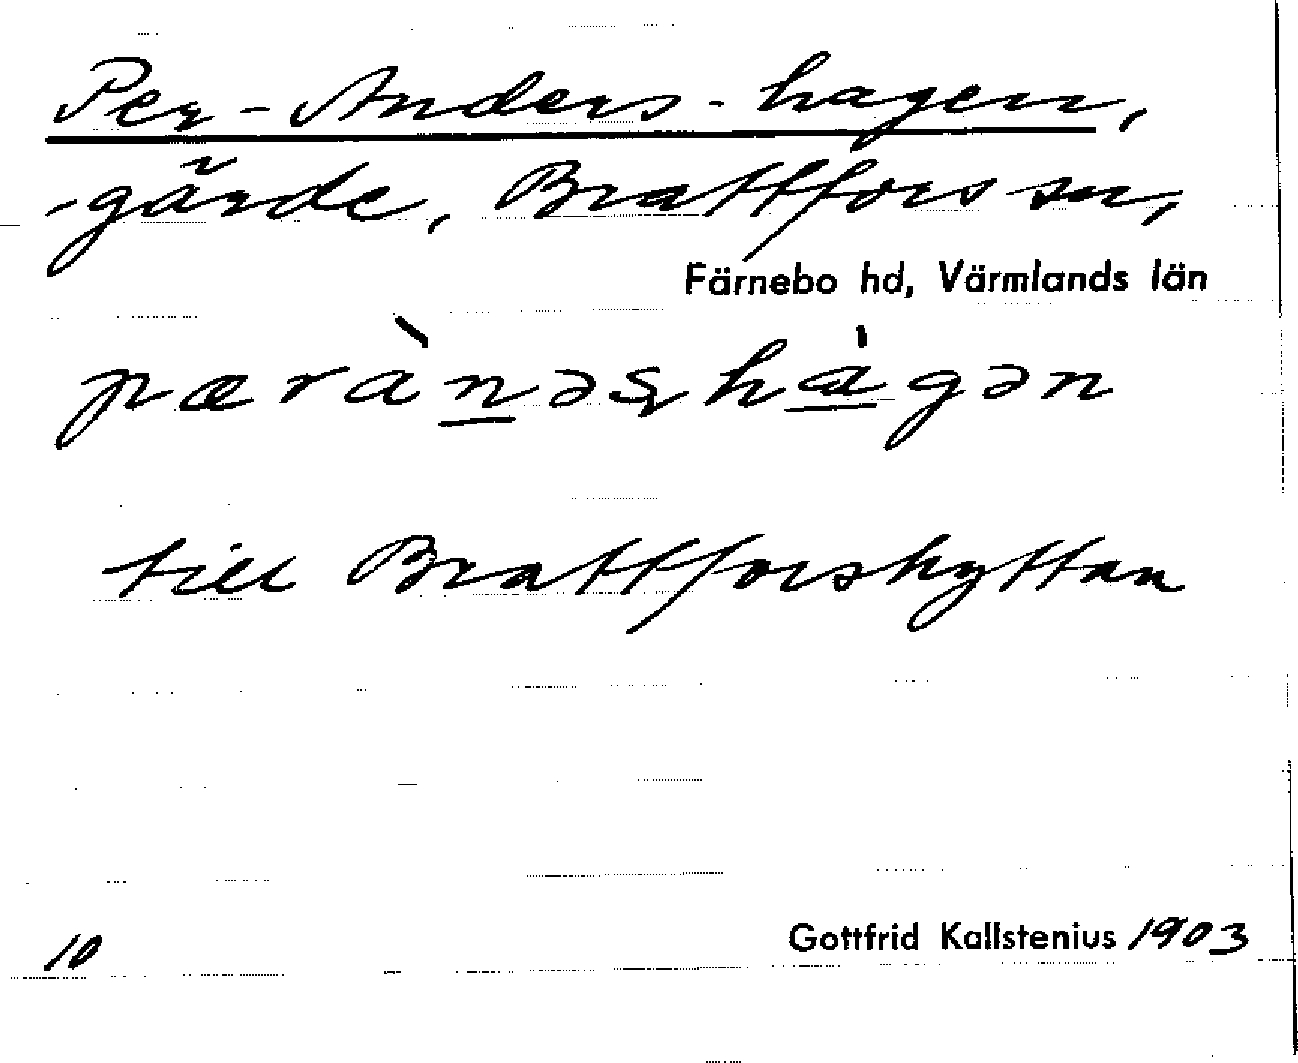 Per-Anders-hagen,
-gärde, Brattfors sn,
Färnebo hd, Värmlands län
pæranəshagən
till Brattforshyttan
10
Gottfrid Kallstenius 1903